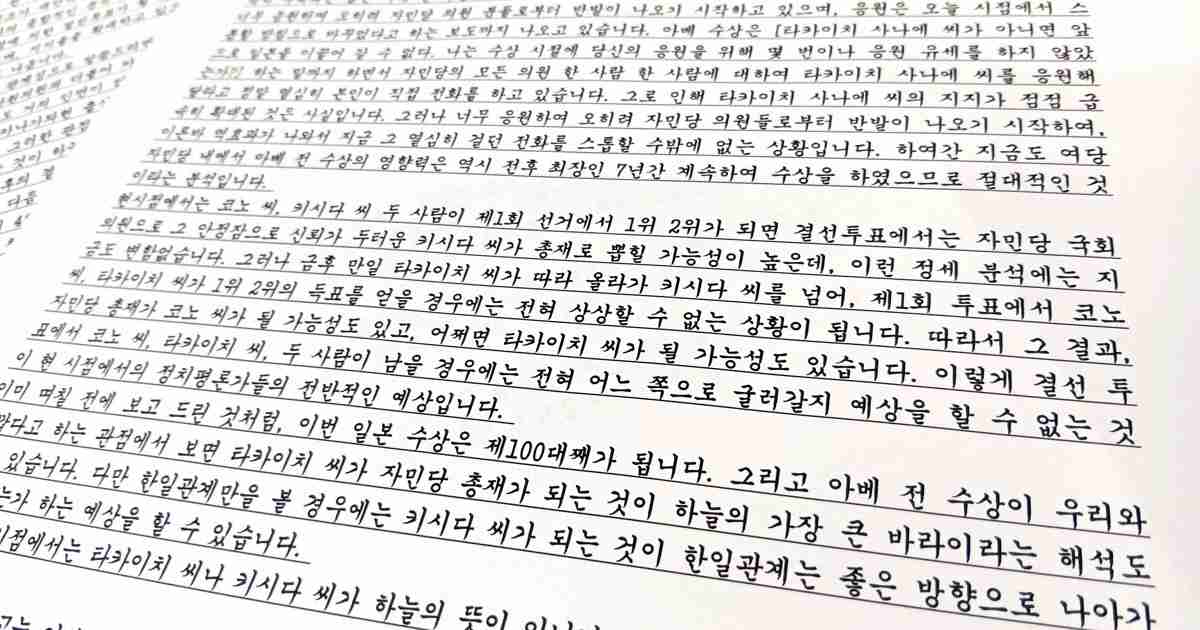 부 응원하며 오히려 자민당 의원 분들로부터 반발이 나오기 시작하고 있으며, 응원은 오늘 시점에서 스
톱할 방침으로 바뀌었다고 하는 보도까지 나오고 있습니다. 아베 수상은 [타카이치 사나에 씨가 아니면 앞
으로 일본을 이끌어 갈 수 없다. 나는 수상 시절에 당신의 응원을 위해 몇 번이나 응원 유세를 하지 않았
는가!] 하는 말까지 하면서 자민당의 모든 의원 한 사람 한 사람에 대하여 타카이치 사나에 씨를 응원해
달라고 정말 열심히 본인이 직접 전화를 하고 있습니다. 그로 인해 타카이치 사나에 씨의 지지가 점점 급
속히 확대된 것은 사실입니다. 그러나 너무 응원하여 오히려 자민당 의원들로부터 반발이 나오기 시작하여,
이른바 역효과가 나와서 지금 그 열심히 걸던 전화를 스톱할 수밖에 없는 상황입니다. 하여간 지금도 여당
자민당 내에서 아베 전 수상의 영향력은 역시 전후 최장인 7년간 계속하여 수상을 하였으므로 절대적인 것
이라는 분석입니다.
현시점에서는 코노 씨, 키시다 씨 두 사람이 제1회 선거에서 1위 2위가 되면 결선투표에서는 자민당 국회
의원으로 그 안정잠으로 신뢰가 두터운 키시다 씨가 총재로 뽑힐 가능성이 높은데, 이런 정세 분석에는 지
금도 변함없습니다. 그러나 금후 만일 타카이치 씨가 따라 올라가 키시다 씨를 넘어, 제1회 투표에서 코노
씨, 타카이치 씨가 1위 2위의 득표를 얻을 경우에는 전혀 상상할 수 없는 상황이 됩니다. 따라서 그 결과,
자민당 총재가 코노 씨가 될 가능성도 있고, 어쩌면 타카이치 씨가 될 가능성도 있습니다. 이렇게 결선 투
표에서 코노 씨, 타카이치 씨, 두 사람이 남을 경우에는 전혀 어느 쪽으로 굴러갈지 예상을 할 수 없는 것
이 현 시점에서의 정치평론가들의 전반적인 예상입니다.
이미 며칠 전에 보고 드린 것처럼, 이번 일본 수상은 제100대째가 됩니다. 그리고 아베 전 수상이 우리와
깝다고 하는 관점에서 보면 타카이치 씨가 자민당 총재가 되는 것이 하늘의 가장 큰 바라이라는 해석도
있습니다. 다만 한일관계만을 볼 경우에는 키시다 씨가 되는 것이 한일관계는 좋은 방향으로 나아가
는가 하는 예상을 할 수 있습니다.
시점에서는 타카이치 씨나 키시다 씨가 하늘의 뜻이